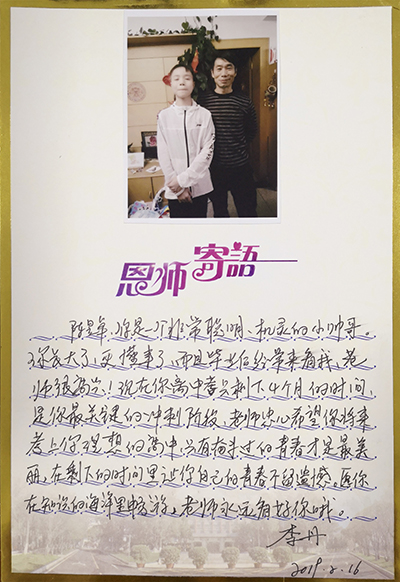 恩师寄語
陈昱卓,你是一个非常聪明、机灵的小帅哥。
你长大了,更懂事了,而且毕业后经常来看我,老
师很高兴!现在你离中考只剩下4个月的时间,
是你最关键的冲刺阶段,老师忠心希望你将来
考上你理想的高中,只有奋斗过的青春才是最美
丽,在剩下的时间里让你自己的青春不留遗憾。愿你
在知识的海洋里畅游,老师永远看好你哦。
李丹
2019.2.16